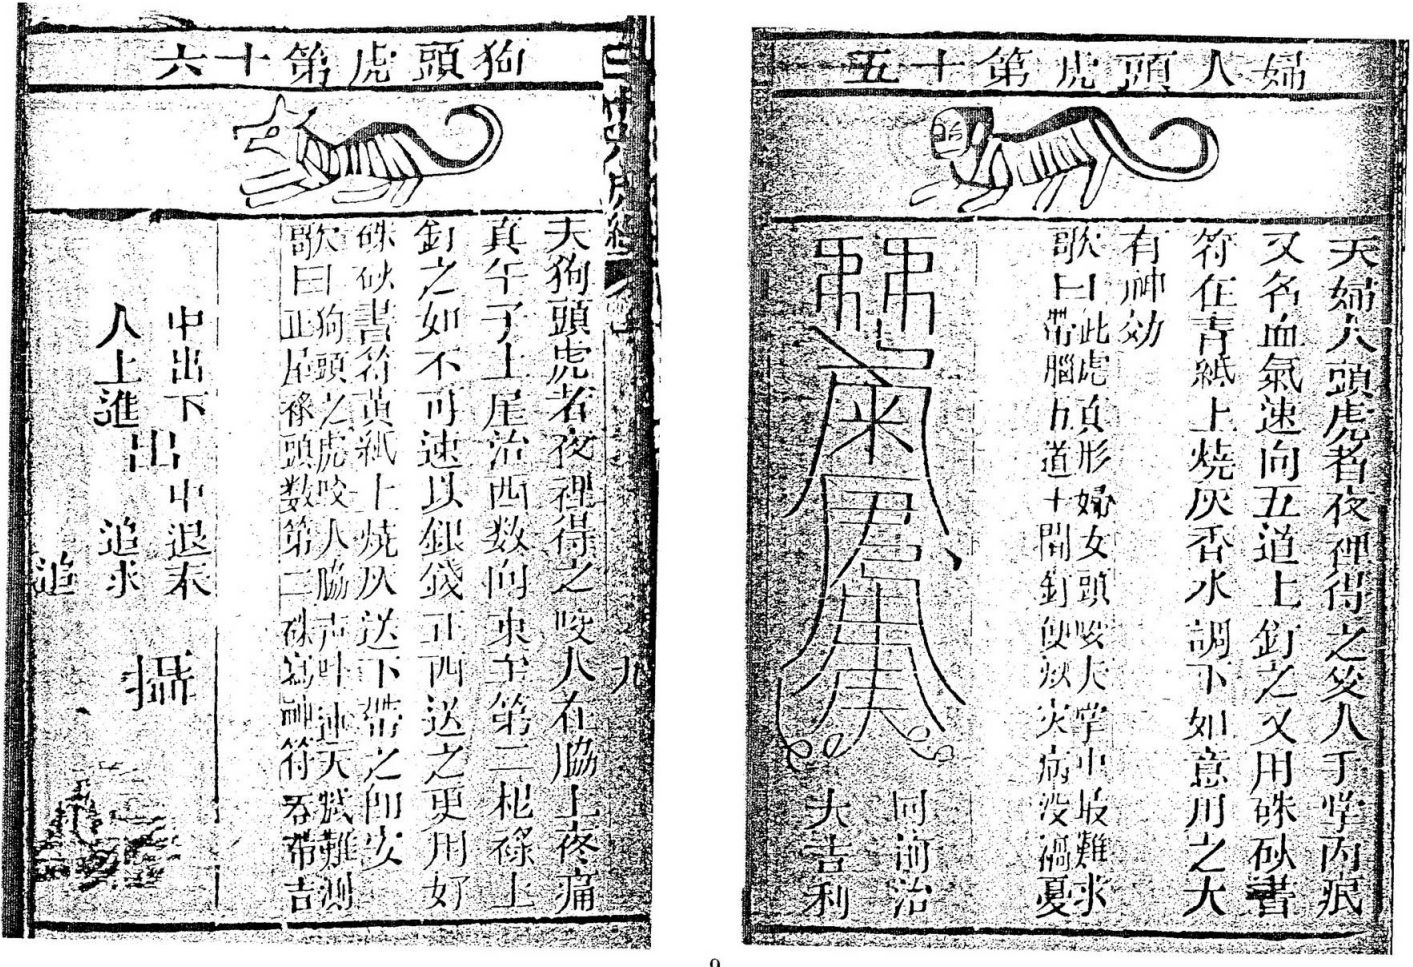 婦人頭虎第十五
夫婦人頭虎者夜裡得之咬人手掌內痕
又名血氣速向五道上釘之又用硃砂書
符在青紙上燒灰香水調下如意用之大
有神効
歌曰此虎頁形婦女頭咳夫掌中最難求
帶腦五道十間釘便災病没禍憂
回河治
大吉利
狗頭虎第十六
夫狗頭虎者夜裡得之咬人在脇上疼痛
真午子土屋治西数向東至第二杞祿上
釘之如不可速以銀錢正西送之更用好
硃砂書符黃紙上燒灰送下帶之即安
歌曰狗頭之虎咬人脇声叶連天賦難測
正屋祿頭数第二硃寫神符吞帶吉
中出下
出
中退不
人上進
追求
追
攝
九
9